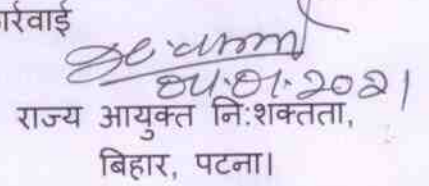 र्रवाई
04.01.2021
राज्य आयुक्त नि:शक्तता,
बिहार, पटना।